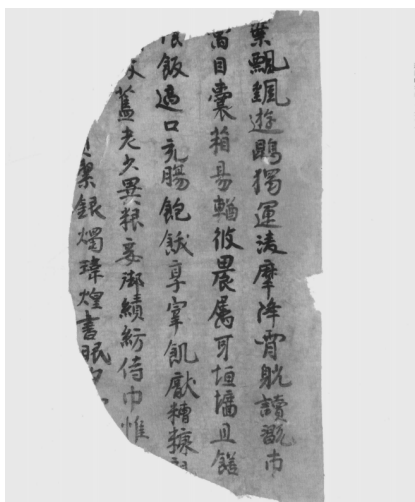 葉飄颻遊鵾獨運淩摩降霄躭讀翫市
寓目囊葙易輶攸畏屬耳垣墻且饍
飯適口充腸飽飫享宰飢厭糟糠
舊老少異粮妾御績紡侍巾帷
潔銀燭煒煌書眠夕